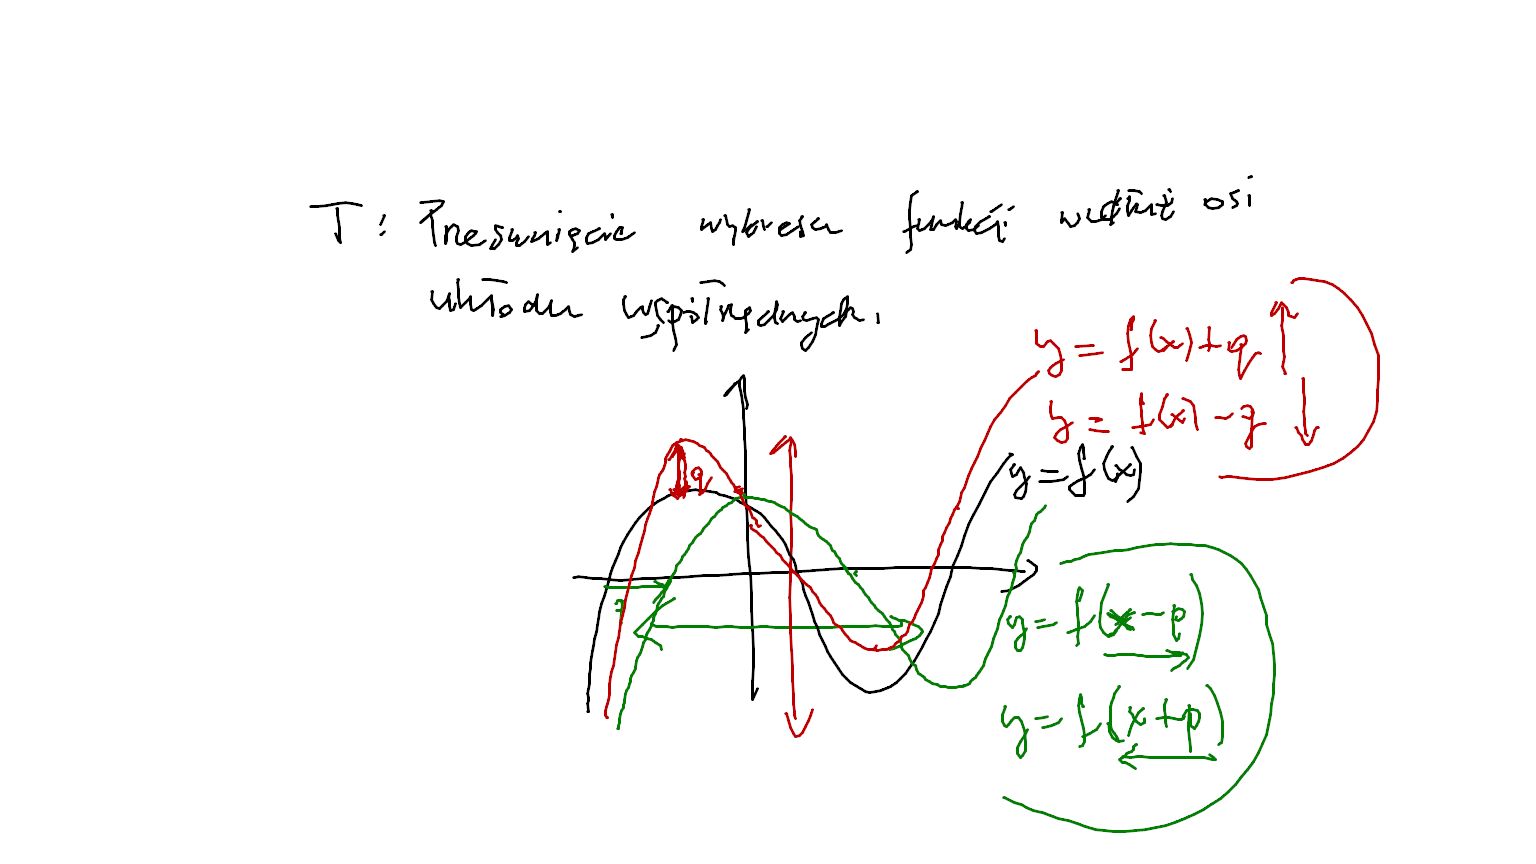 T: Przesunięcie wykresu funkcji wzdłuż osi
układu współrzędnych.
y = f(x) + q
y = f(x) - q
y = f(x)
q
p
y = f(x-p)
y = f(x+p)